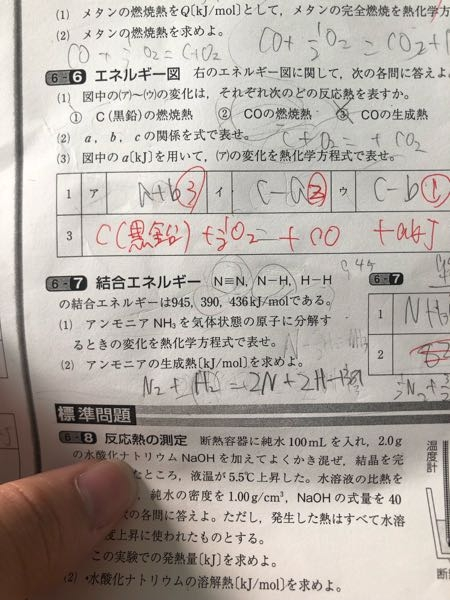 (1) メタンの燃焼熱をQ〔kJ/mol〕として，メタンの完全燃焼を熱化学方
(2) メタンの燃焼熱を求めよ。
CO+½O₂=CO₂+
6-6 エネルギー図 右のエネルギー図に関して，次の各問に答えよ。
(1) 図中の(ア)〜(ウ)の変化は，それぞれ次のどの反応熱を表すか。
① C(黒鉛)の燃焼熱 ② COの燃焼熱 ③ COの生成熱
(2) a, b, cの関係を式で表せ。
C+O₂=+CO₂
(3) 図中のa〔kJ〕を用いて，(ア)の変化を熱化学方程式で表せ。
1 ア a+b ③ イ c-a ② ウ c-b ①
3 C(黒鉛)+½O₂=+CO +akJ
6-7 結合エネルギー N≡N, N-H, H-H
の結合エネルギーは945, 390, 436kJ/molである。
(1) アンモニアNH₃を気体状態の原子に分解す
るときの変化を熱化学方程式で表せ。
(2) アンモニアの生成熱〔kJ/mol〕を求めよ。
6-7
1
2
N₂+H₂=2N+2H
標準問題
6-8 反応熱の測定 断熱容器に純水100mLを入れ，2.0g
の水酸化ナトリウムNaOHを加えてよくかき混ぜ，結晶を完
たところ，液温が5.5℃上昇した。水溶液の比熱を
，純水の密度を1.00g/cm³，NaOHの式量を40
の各問に答えよ。ただし，発生した熱はすべて水溶
度上昇に使われたものとする。
この実験での発熱量〔kJ〕を求めよ。
(2) 水酸化ナトリウムの溶解熱〔kJ/mol〕を求めよ。
温度計
断